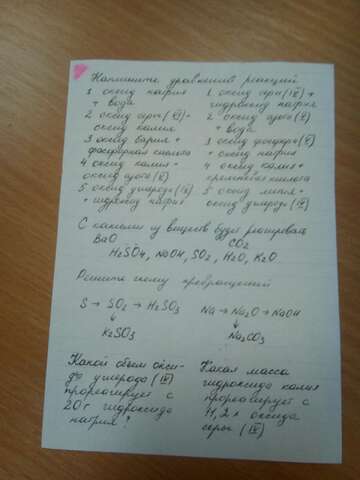 Напишите уравнения реакций
1 оксид натрия
+ вода
2 оксид серы (VI) +
оксид калия
3 оксид бария +
фосфорная кислота
4 оксид калия +
оксид азота (V)
5 оксид углерода (IV)
+ гидроксид натрия
1 оксид серы (IV) +
гидроксид натрия
2 оксид азота (V)
+ вода
3 оксид фосфора (V)
+ оксид натрия
4 оксид калия +
кремниевая кислота
5 оксид лития +
оксид углерода (IV)
С какими из веществ будет реагировать
BaO CO2
H2SO4, NaOH, SO2, H2O, K2O
Решите схему превращений
S → SO2 → H2SO3
↓
K2SO3
Na → Na2O → NaOH
↓
Na2CO3
Какой объем окси-
да углерода (IV)
прореагирует с
20 г гидроксида
натрия?
Какая масса
гидроксида калия
прореагирует с
11,2 л оксида
серы (IV)